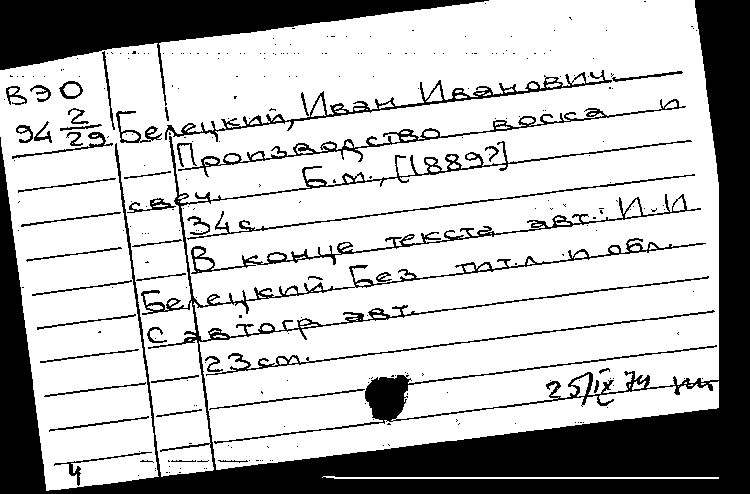 ВЭО
94 2/29 Белецкий, Иван Иванович.
Производство воска и
свеч. Б.м., [1889?]
34 с.
В конце текста авт.: И.И
Белецкий. Без тит.л и обл.
С автогр авт.
23 cm.
25/IX 74
4